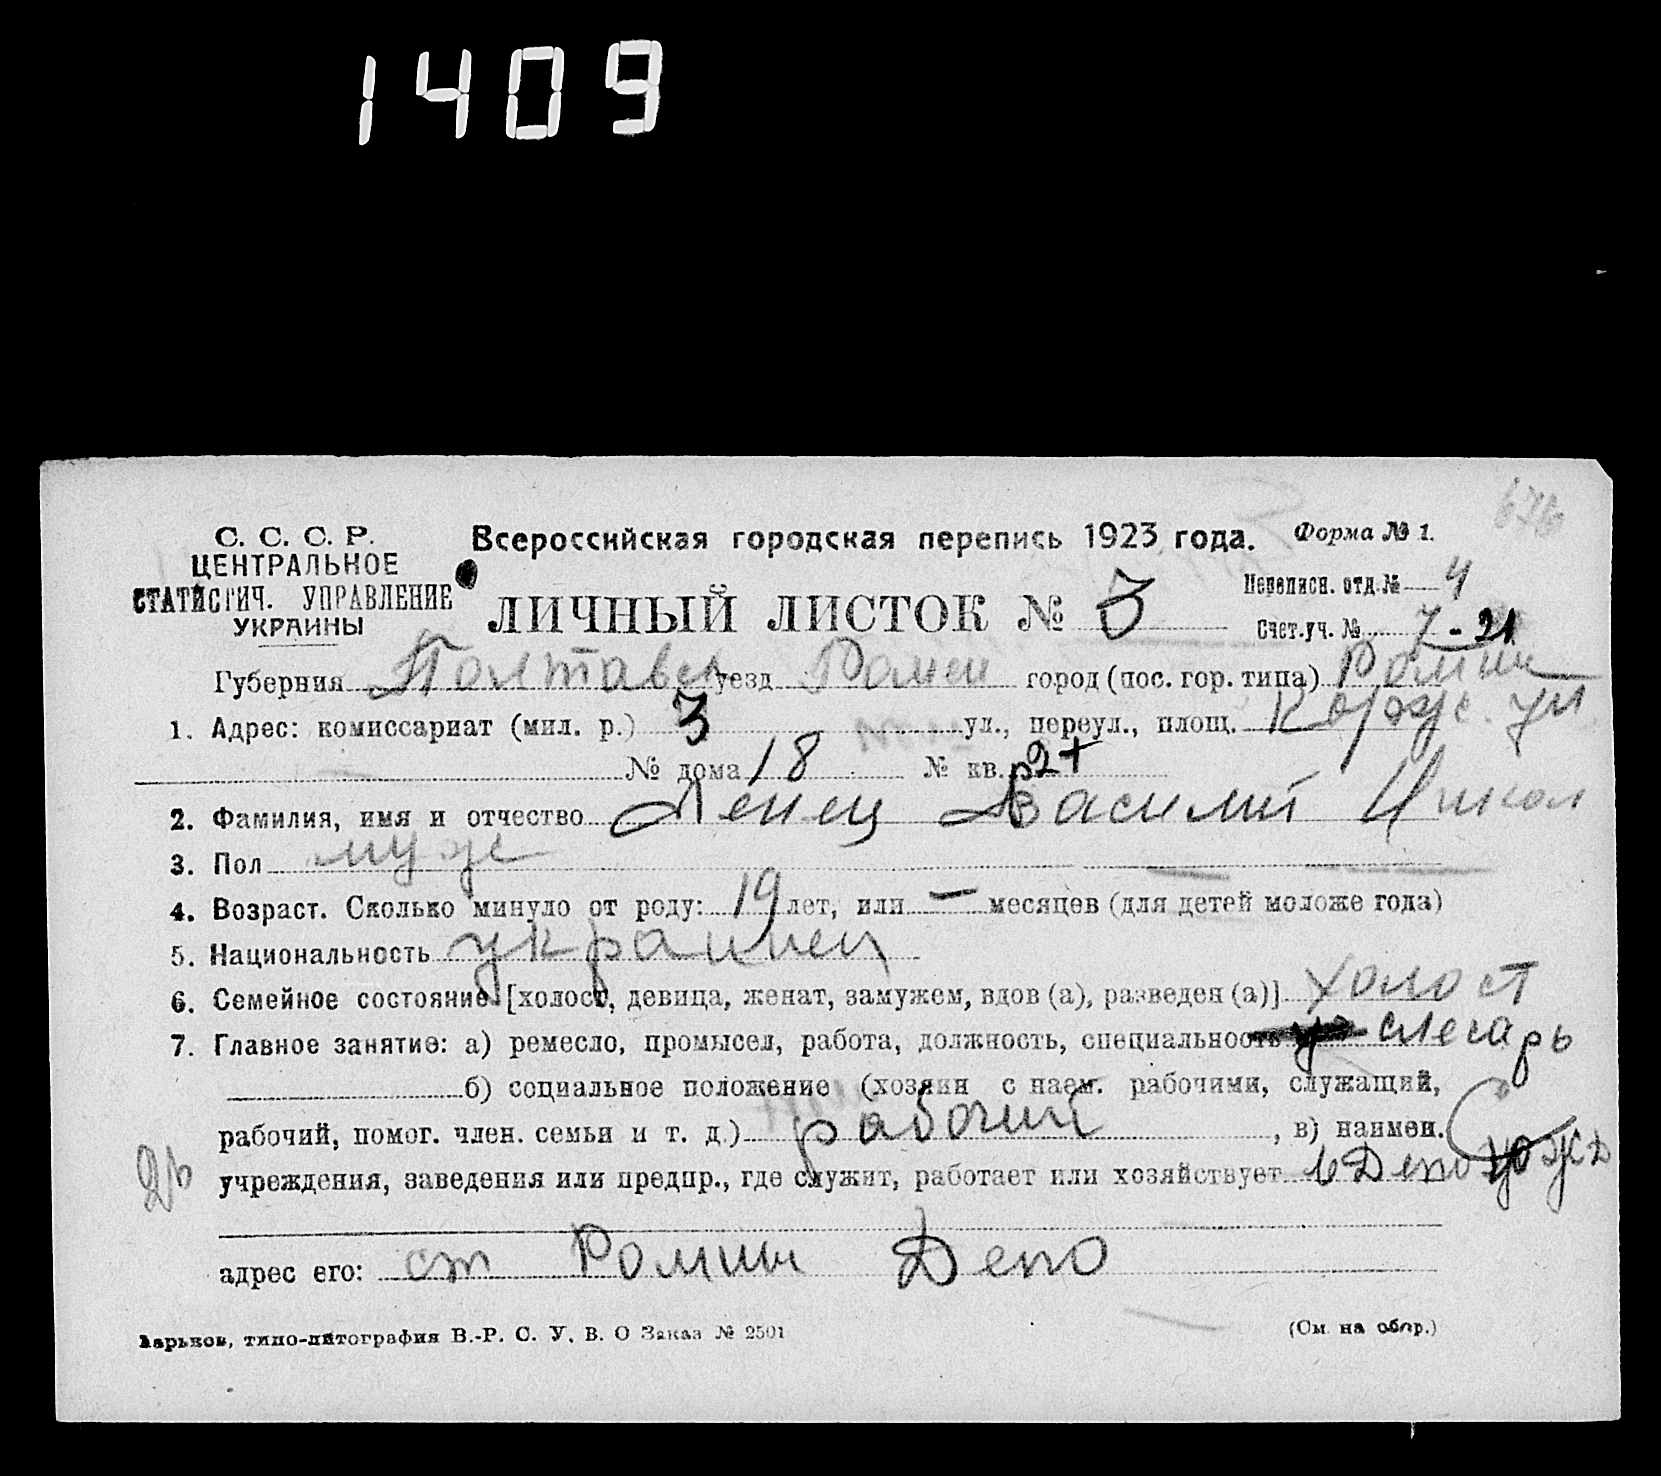 1409
С. С. С. Р.
ЦЕНТРАЛЬНОЕ
СТАТИСТИЧ. УПРАВЛЕНИЕ
УКРАИНЫ
Всероссийская городская перепись 1923 года.
Форма № 1.
ЛИЧНЫЙ ЛИСТОК № 3
Переписн. отд. № 4
Счет.-уч. № 7-21
Губерния Полтавск уезд Ромен город (пос. гор. типа) Ромны
1. Адрес: комиссариат (мил. р.) 3 ул., переул., площ. Корж. ул
№ дома 18 № кв. 2+
2. Фамилия, имя и отчество Ленец Василий Никол
3. Пол муж
4. Возраст. Сколько минуло от роду: 19 лет, или — месяцев (для детей моложе года)
5. Национальность украинец
6. Семейное состояние [холост, девица, женат, замужем, вдов (а), разведен (а)] холост
7. Главное занятие: а) ремесло, промысел, работа, должность, специальность слесарь
б) социальное положение (хозяин с наем. рабочими, служащий,
рабочий, помог. член. семьи и т. д.) рабочий, в) наимен.
учреждения, заведения или предпр., где служит, работает или хозяйствует в Депо ЮЖД
адрес его: ст Ромны Депо
Харьков, типо-литография В.-Р. С. У. В. О Заказ № 2501
(См. на обор.)